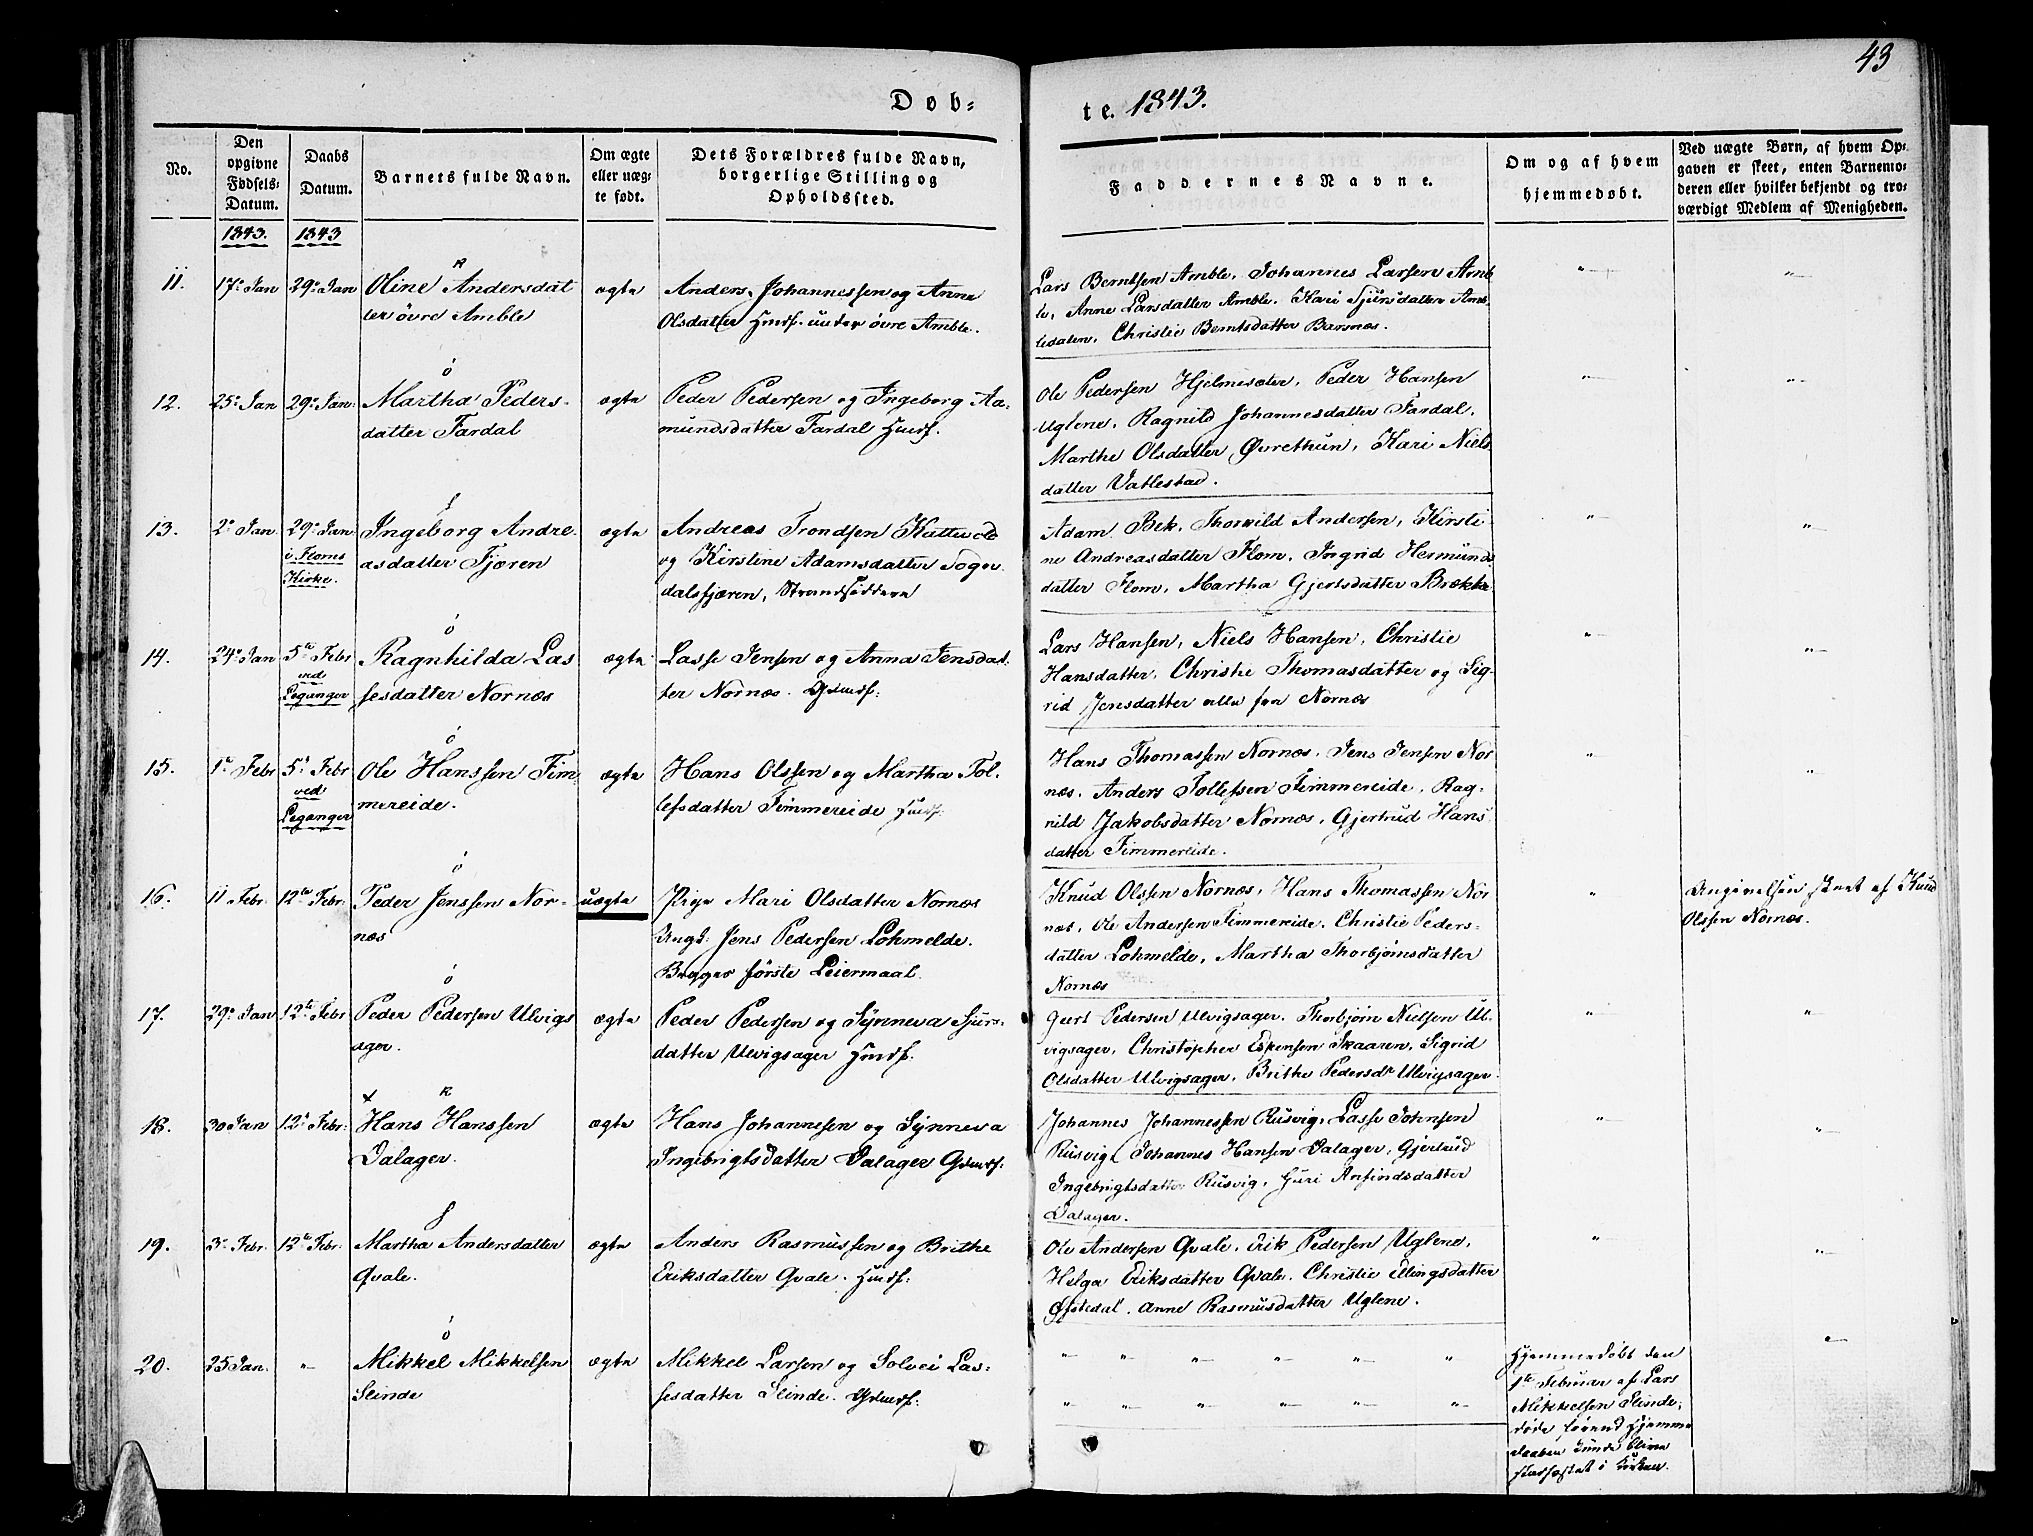 43
Døb-
te. 1843.
No.
Den opgivne Fødsels-Datum.
Daabs Datum.
Barnets fulde Navn.
Om ægte eller uægte født.
Dets Forældres fulde Navn, borgerlige Stilling og Opholdssted.
Faddernes Navne.
Om og af hvem hjemmedøbt.
Ved uægte Børn, af hvem Opgaven er skeet, enten Barnemoderen eller hvilket bekjendt og troværdigt Medlem af Menigheden.
1843. 1843
11. 17. Jan 29. Jan Oline Andersdat
ter øvre Amble
ægte
Anders Johannessen og Anna
Olsdatter Hmdf. under øvre Amble.
Lars Berntsen Amble, Johannes Larsen Amb
le, Anne Larsdatter Amble, Kari Sjursdatter Amb
ledalen, Christie Berntsdatter Barsnæs.
12. 25. Jan 29. Jan. Martha Peders-
datter Fardal
ægte
Peder Pedersen og Ingeborg Aa-
mundsdatter Fardal Hmdf.
Ole Pedersen Hjelmesæter, Peder Hansen
Uglene, Ragnild Johannesdatter Fardal,
Marthe Olsdatter Øvrethun, Kari Niels
datter Vatlestad.
13. 2. Jan 29. Jan.
i Floms
Kirke.
Ingeborg Andre-
asdatter Fjæren
ægte
Andreas Trondsen Kattevold
og Kirstine Adamsdatter Sogn
dalsfjæren, Strandsiddere
Adam Bek, Thorvild Andersen, Kirsti
ne Andreasdatter Flom, Ingrid Hermunds
datter Flom, Martha Gjertsdatter Brække
14. 24. Jan 5te Febr
ved
Leganger
Ragnhilda Las
sesdatter Nornæs
ægte
Lasse Jensen og Anna Jensdat-
ter Nornæs. Gdmdf:
Lars Hansen, Niels Hansen, Christie
Hansdatter, Christie Thomasdatter og Sig-
rid Jensdatter alle fra Nornæs
15. 1e Febr 5t Febr
ved
Leganger
Ole Hanssen Tim
mereide.
ægte
Hans Olssen og Martha Tol-
lefsdatter Timmereide Hmdf:
Hans Thomassen Nornæs, Jens Jensen Nor
næs, Anders Tollefsen Timmereide, Rag-
nild Jakobsdatter Nornæs, Gjertrud Hans
datter Timmereide.
16. 11 Febr. 12te Febr. Peder Jenssen Nor-
næs
uægte
Pige Mari Olsdatter Nornæs
Ungk: Jens Pedersen Lohmelde.
Begges første Leiermaal.
Knud Olssen Nornæs, Hans Thomassen Nor
næs, Ole Andersen Timmereide, Christie Peders-
datter Lohmelde, Martha Thorbjørnsdatter
Nornæs
Angivelsen skeet af Knud
Olssen Nornæs.
17. 29. Jan 12te Febr Peder Pedersen Ulvigs
ager.
ægte
Peder Pedersen og Synneva Sjurs-
datter Ulvigsager Hmdf.
Gurt Pedersen Ulvigsager, Thorbjørn Nielsen Ul-
vigsager, Christopher Eskensen Skaaren, Sigrid
Olsdatter Ulvigsager, Brithe Pedersdr Ulvigsager.
18. 30 Jan 12t Febr: Hans Hanssen
Dalager.
ægte
Hans Johannesen og Synneva
Ingebrigtsdatter Dalager Gdmdf.
Johannes Johannessen Rusvig, Lasse Johnsen
Rusvig, Johannes Hansen Dalager, Gjertrud
Ingebrigtsdatter Rusvig, Guri Anfindsdatter
Dalager.
19. 3. Febr. 12te Febr. Martha Andersdatter
Qvale.
ægte
Anders Rasmussen og Brithe
Eriksdatter Qvale. Hmdf:
Ole Andersen Qvale, Erik Pedersen Uglene,
Helga Eriksdatter Qvale, Christie Ellingsdatter
Øfstedal, Anne Rasmusdatter Uglene.
20. 25 Jan. Mikkel Mikkelsen
Slinde
ægte
Mikkel Larsen og Solvei Las-
sesdatter Slinde. Gdmdf:
Hjemmedøbt den
1te Februar af Lars
Mikkelsen Slinde;
døde førend Hjemme
daaben kunde blive
stadfæstet i Kirken.